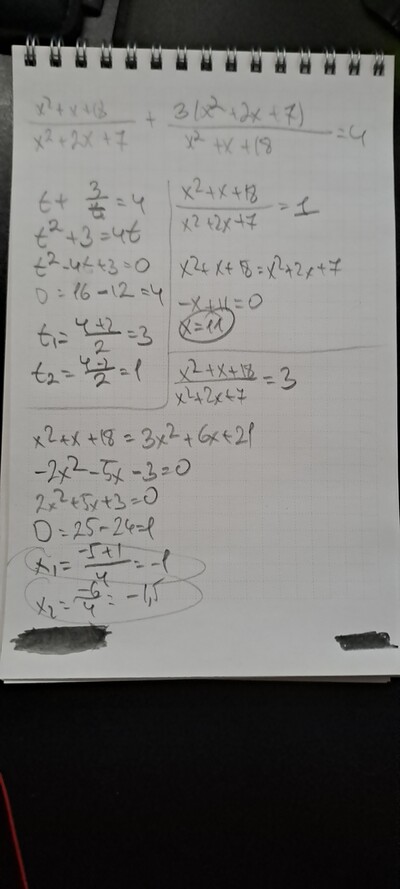 x²+x+18 / x²+2x+7 + 3(x²+2x+7) / x²+x+18 = 4
t + 3/t = 4
t²+3=4t
t²-4t+3=0
D=16-12=4
t₁= 4+2 / 2 =3
t₂= 4-2 / 2 =1
x²+x+18 / x²+2x+7 = 1
x²+x+18=x²+2x+7
-x+11=0
x=11
x²+x+18 / x²+2x+7 = 3
x²+x+18=3x²+6x+21
-2x²-5x-3=0
2x²+5x+3=0
D=25-24=1
x₁= -5+1 / 4 =-1
x₂= -6 / 4 = -1,5